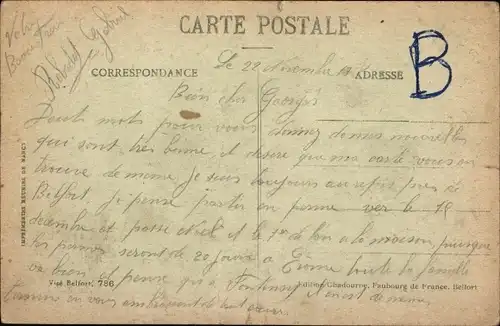 CARTE POSTALE
CORRESPONDANCE
ADRESSE
B
Gabriel
Le 22 Novembre
Bien cher Georges
Deux mots pour vous donner de nos nouvelles
qui sont très bonne et désire que ma carte vous
trouve de même je suis toujours au repos près de
Belfort je pense partir en perme vers le 15
décembre et passé Noël et le 1er de l'an a la maison puisque
les permes seront de 20 jours a toute la famille
va bien et pense qu'a Fontenay il en est de même
en vous embrassant de tout cœur
IMPRIMERIES RÉUNIES DE NANCY
Visé Belfort, 786
Édition Chadourne, Faubourg de France, Belfort